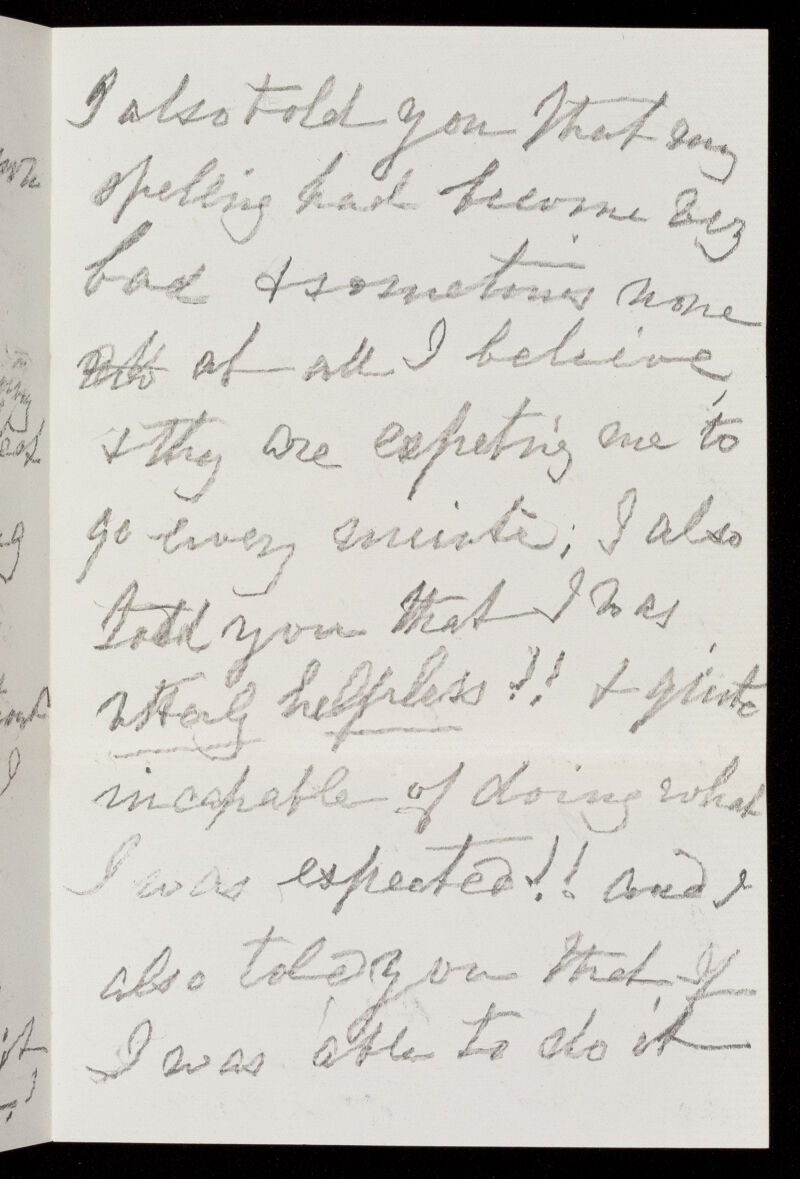 I also told you that my
spelling had become very
bad & sometimes none
at all I beleive,
& they are expeting me to
go every minute; I also
told you that I was
utterly helpless!! & quite
incapable of doing what
I was expected!! and I
also told you that if
I was able to do it